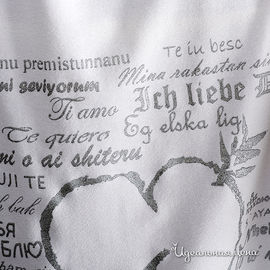 nu premistunnanu
Te iu besc
ni seviyorum
Mina rakastan si
Ti amo
Ich liebe D
Te quiero
Eg elska lig
ni o ai shiteru
UJI TE
h bak
БЯ
БЛЮ
Идеальная мама